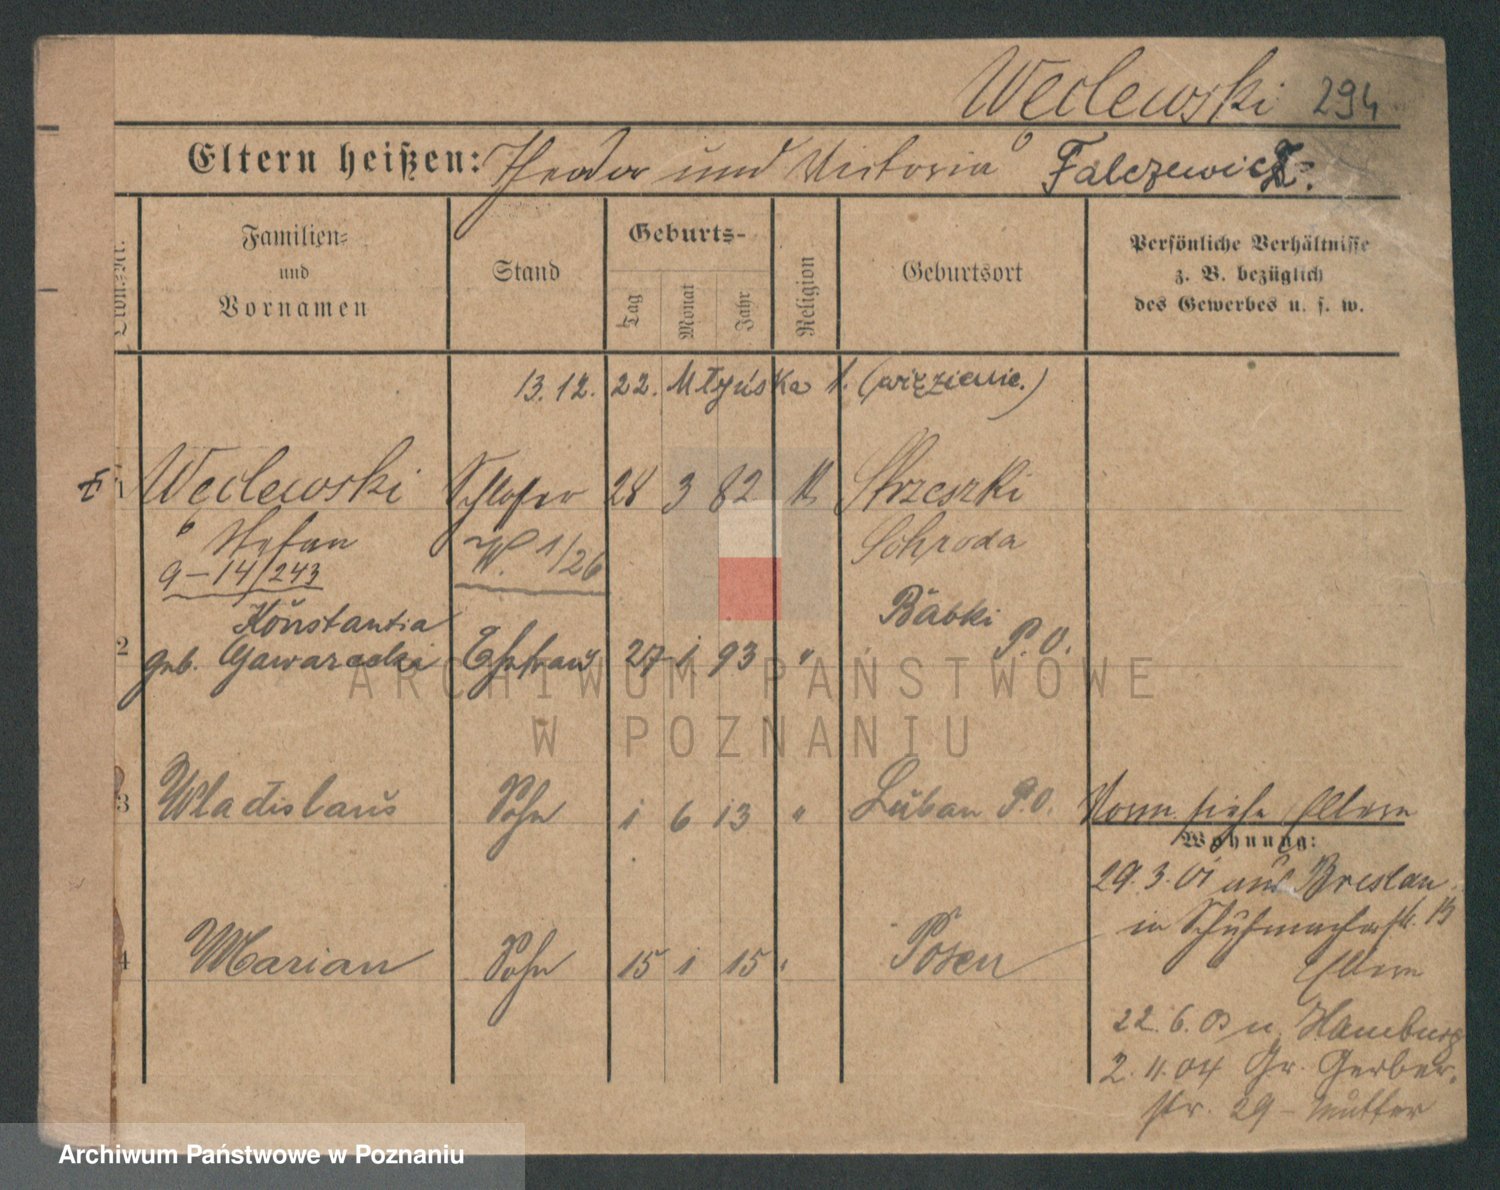 Węclewski 294
Eltern heißen: Theodor und Victoria Falczewicz.
Familien=
und
Vornamen
Stand
Geburts-
Tag
Monat
Jahr
Religion
Geburtsort
Persönliche Verhältnisse
z. B. bezüglich
des Gewerbes u. s. w.
13.12. 22. Młyńska 1. (więzienie.)
1 Węclewski Schlosser 28 3 82 K Strzeszki
Stefan W. 1/26 Schroda
9-14/243
Konstantia Babki
2 geb. Gawarecka Ehefrau 27 1 93 " P.O.
ARCHIWUM PAŃSTWOWE
W POZNANIU
3 Wladislaus Sohn 1 6 13 " Luban P.O. Vorm siehe Eltern
Wohnung:
29.3.01 aus Breslau
in Schuhmacherstr. 13
Eltern
4 Marian Sohn 15 1 15 " Posen
22.6.03 n. Hamburg
2.11.04 Gr. Gerber-
str. 29 - Mutter
Archiwum Państwowe w Poznaniu